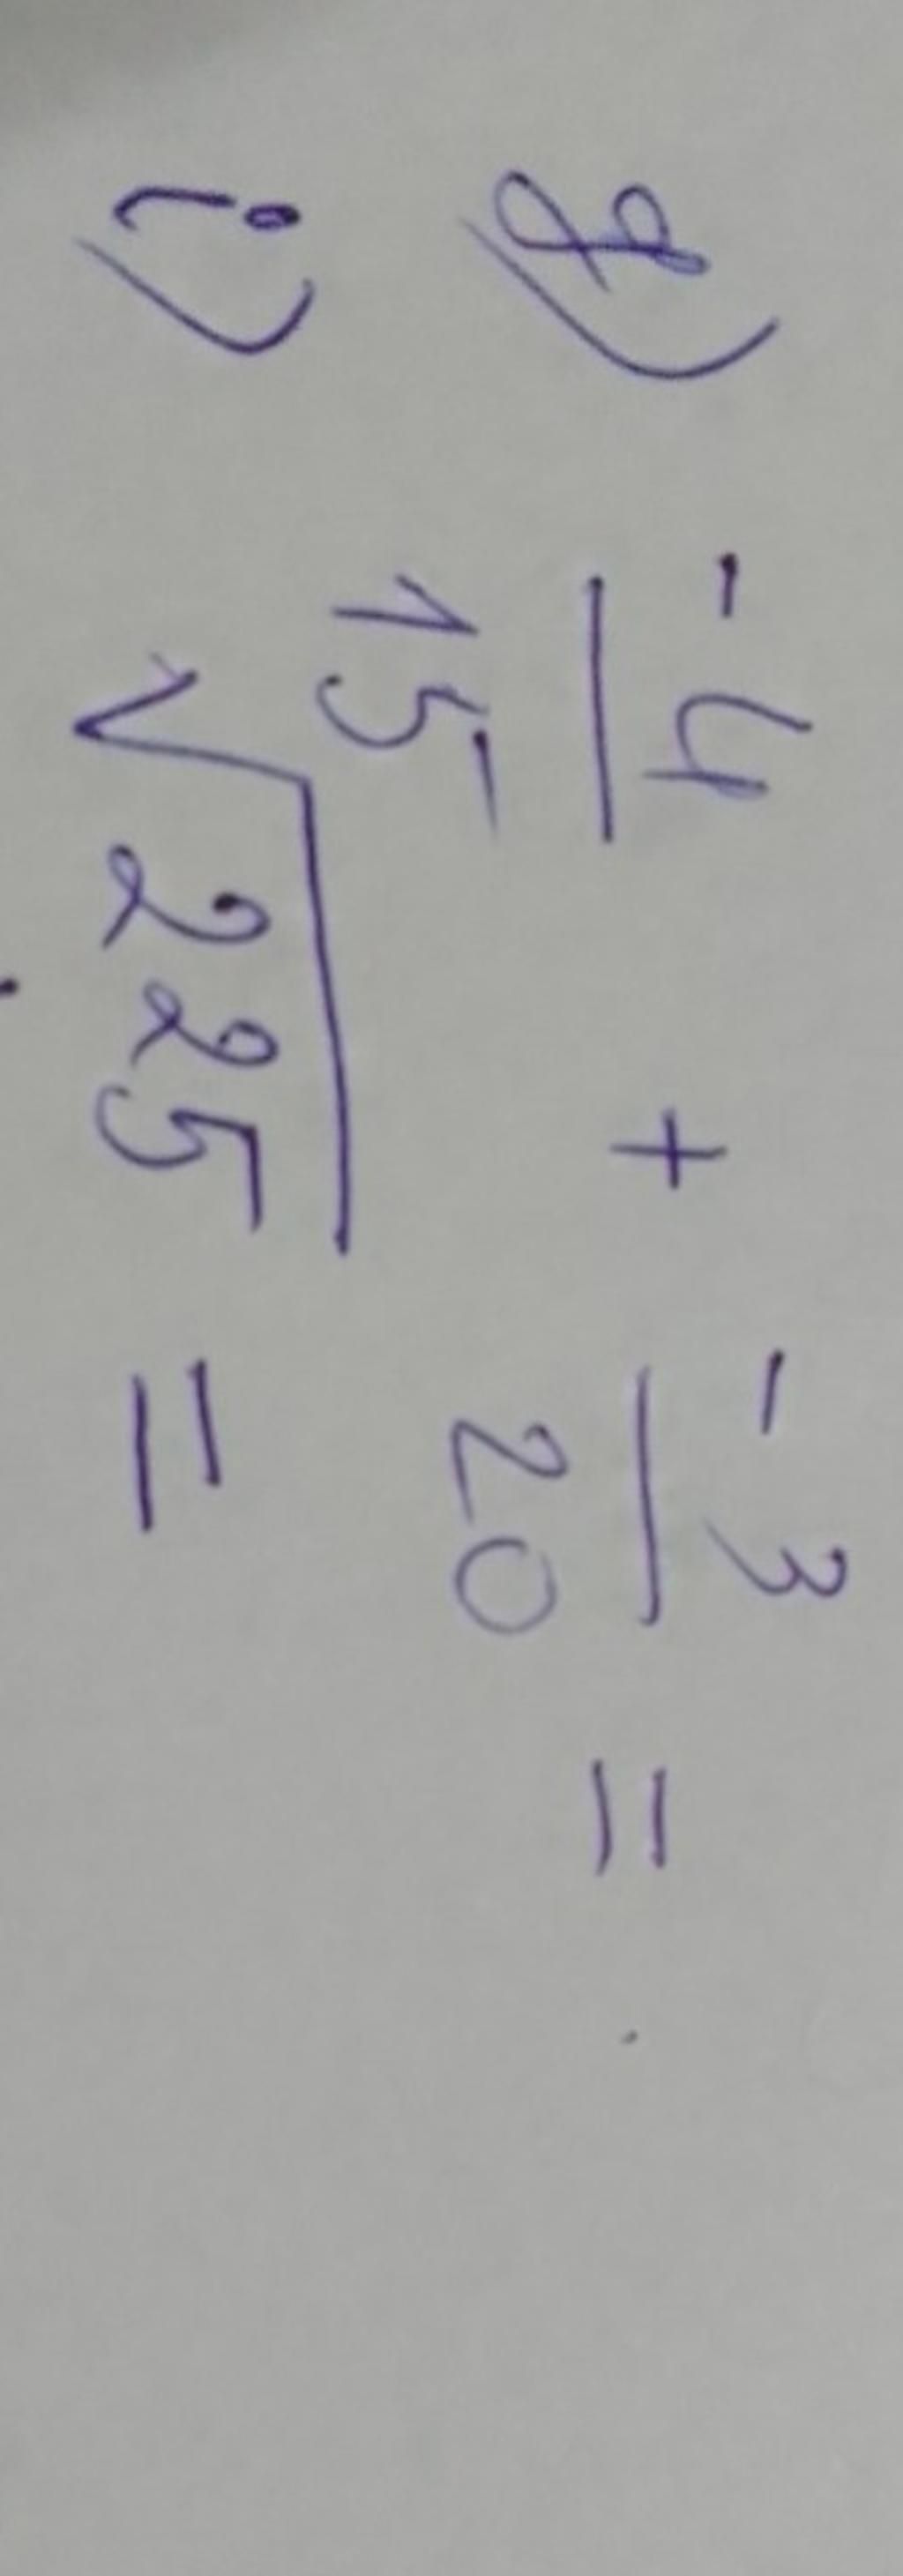 g) -4/15 + -3/20 =
i) √225 =